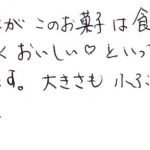 が このお菓子は食
く おいしい♡ といっ
す。大きさも 小ぶ